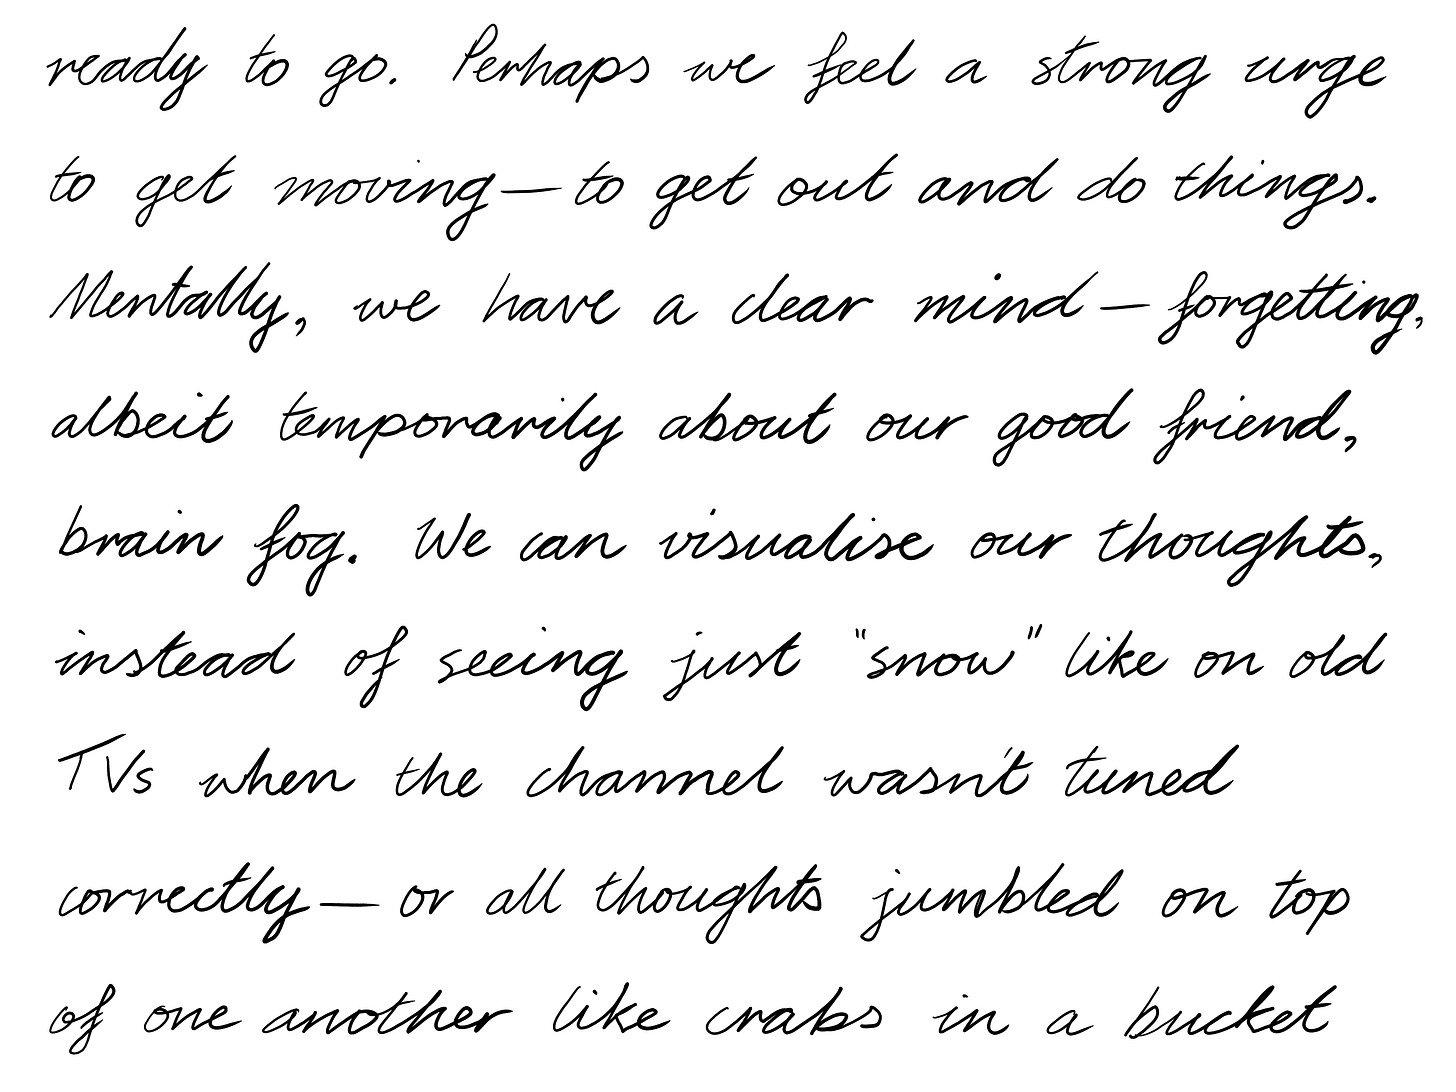 ready to go. Perhaps we feel a strong urge
to get moving—to get out and do things.
Mentally, we have a clear mind—forgetting,
albeit temporarily about our good friend,
brain fog. We can visualise our thoughts,
instead of seeing just "snow" like on old
TVs when the channel wasn't tuned
correctly—or all thoughts jumbled on top
of one another like crabs in a bucket